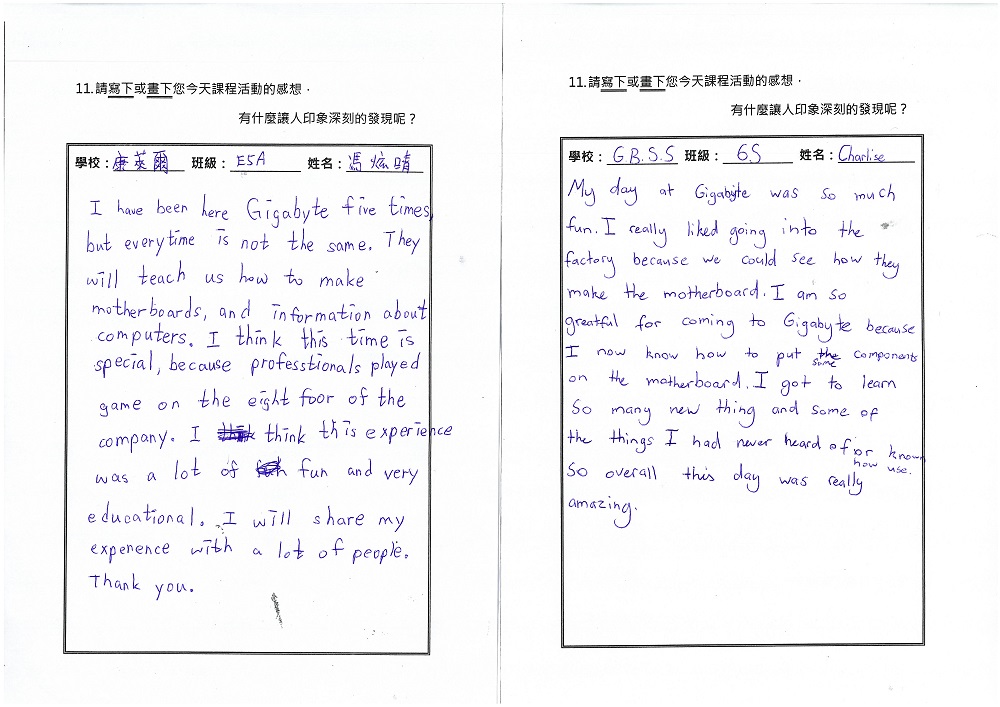 11.請寫下或畫下您今天課程活動的感想，
有什麼讓人印象深刻的發現呢？
學校：康萊爾 班級：E5A 姓名：馮炫晴
I have been here Gigabyte five times,
but everytime is not the same. They
will teach us how to make
motherboards, and information about
computers. I think this time is
special, because professtionals played
game on the eight foor of the
company. I think this experience
was a lot of fun and very
educational. I will share my
experence with a lot of people.
Thank you.
11.請寫下或畫下您今天課程活動的感想，
有什麼讓人印象深刻的發現呢？
學校：G.B.S.S 班級：6S 姓名：Charlise
My day at Gigabyte was so much
fun. I really liked going into the
factory because we could see how they
make the motherboard. I am so
greatful for coming to Gigabyte because
I now know how to put some components
on the motherboard. I got to learn
so many new thing and some of
the things I had never heard of or known
how use.
So overall this day was really
amazing.